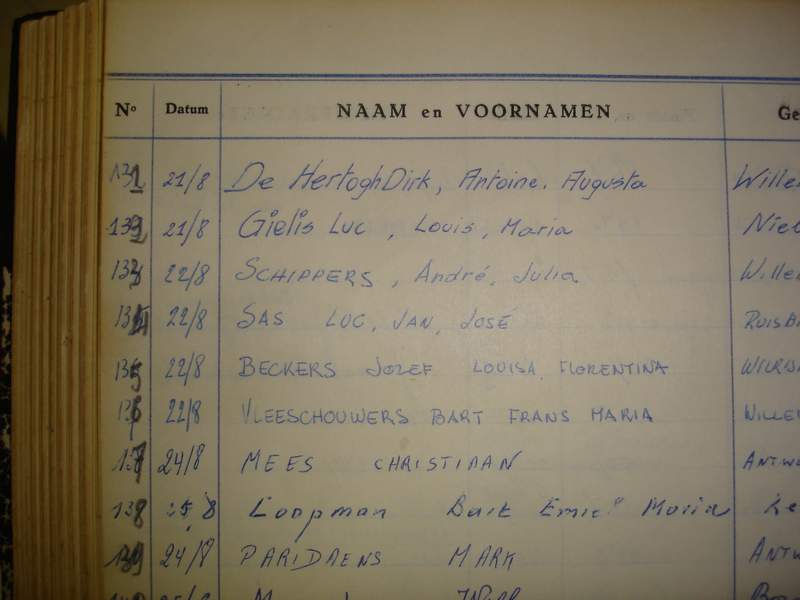 Nº Datum NAAM en VOORNAMEN
131 21/8 De Hertogh Dirk, Antoine, Augusta
132 21/8 Gielis Luc, Louis, Maria
133 22/8 SCHIPPERS, André, Julia
134 22/8 SAS LUC, JAN, JOSÉ
135 22/8 BECKERS JOZEF LOUISA FLORENTINA
136 22/8 VLEESCHOUWERS BART FRANS MARIA
137 24/8 MEES CHRISTIAAN
138 25/8 Loopman Bart Emiel Maria
139 24/8 PARIDAENS MARK